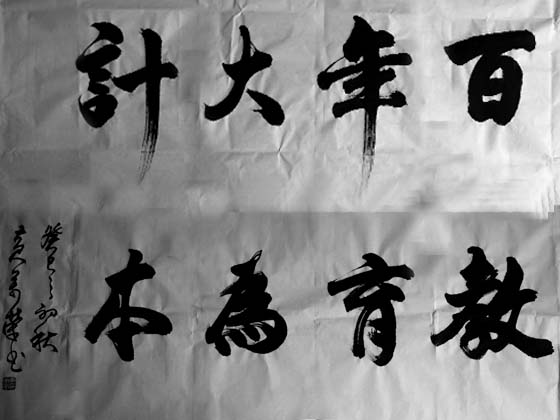 百年大計
教育為本
癸巳初秋